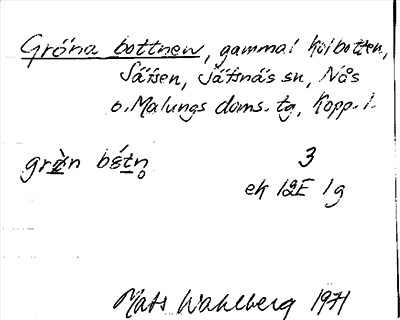 Gröna bottnen, gammal kolbotten,
Säfsen, Säfsnäs sn, Nås
o. Malungs doms. tg, Kopp. l.
3
ek 12E 1g
Mats Wahlberg 1971